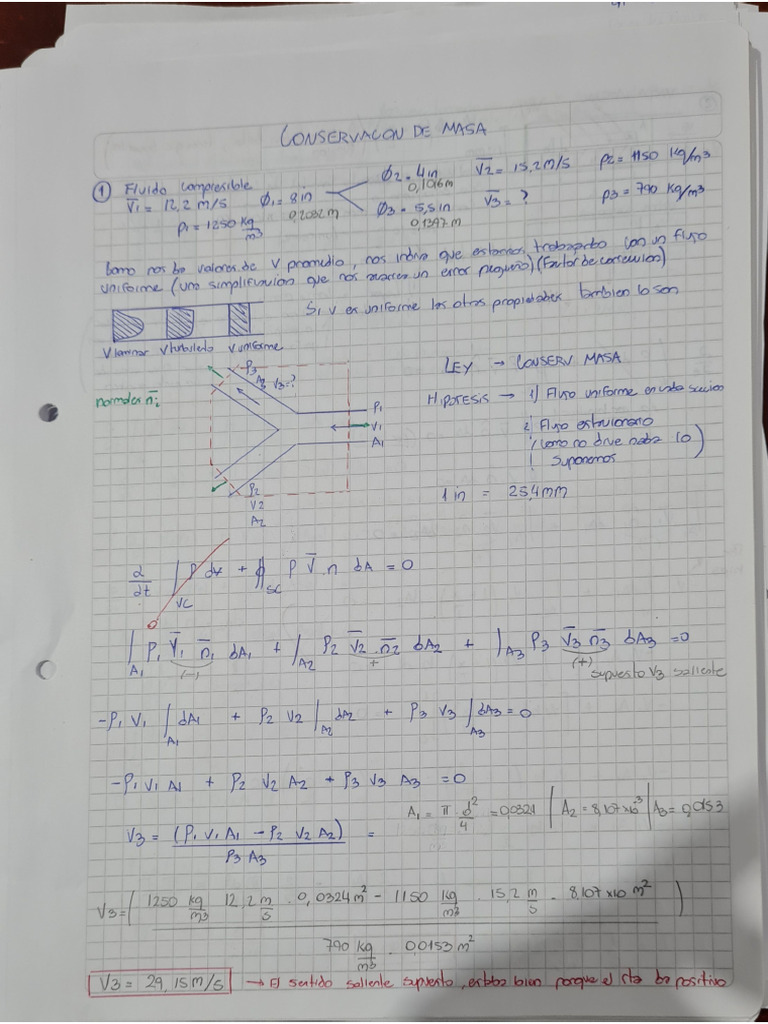 CONSERVACON DE MASA
① Fluido compresible
V̅1 = 12,2 m/s
ρ1 = 1250 kg/m3
ϕ1 = 8in
0,2032 m
ϕ2 = 4in
0,1016m
V̅2 = 15,2 m/s
ρ2 = 1150 kg/m3
ϕ3 = 5,5in
0,1397 m
V̅3 = ?
ρ3 = 790 kg/m3
Como nos da valores de V promedio, nos indica que estamos trabajando con un flujo
uniforme (una simplificacion que nos un error pequeño) (Factor de correccion)
Si v es uniforme las otras propiedades tambien lo son
V laminar V turbulento V uniforme
LEY → CONSERV MASA
HIPOTESIS → 1) Flujo uniforme en cada seccion
2) Flujo estacionario
(como no dice nada lo
suponemos)
1 in = 25,4mm
normales n̅i
P3
A3 V3=?
P1
V1
A1
P2
V2
A2
∂/∂t ∫VC ρ dv + ∮SC ρ V̅ . n dA = 0
0
∫A1 ρ1 V̅1 n̅1 dA1 + ∫A2 ρ2 V̅2 . n̅2 dA2 + ∫A3 ρ3 V̅3 n̅3 dA3 = 0
(-) + (+)
supuesto V3 saliente
-ρ1 V1 ∫A1 dA1 + ρ2 V2 ∫A2 dA2 + ρ3 V3 ∫A3 dA3 = 0
-ρ1 V1 A1 + ρ2 V2 A2 + ρ3 V3 A3 = 0
A1 = π . d²/4 = 0,0324 | A2 = 8,107 x10⁻³ | A3 = 0,0153
V3 = (ρ1 V1 A1 - ρ2 V2 A2) / ρ3 A3 =
V3 = (1250 kg/m3 12,2 m/s . 0,0324 m² - 1150 kg/m3 . 15,2 m/s . 8,107 x10 m²)
790 kg/m3 . 0,0153 m²
V3 = 29,15 m/s → El sentido saliente supuesto, estaba bien porque el rta da positivo